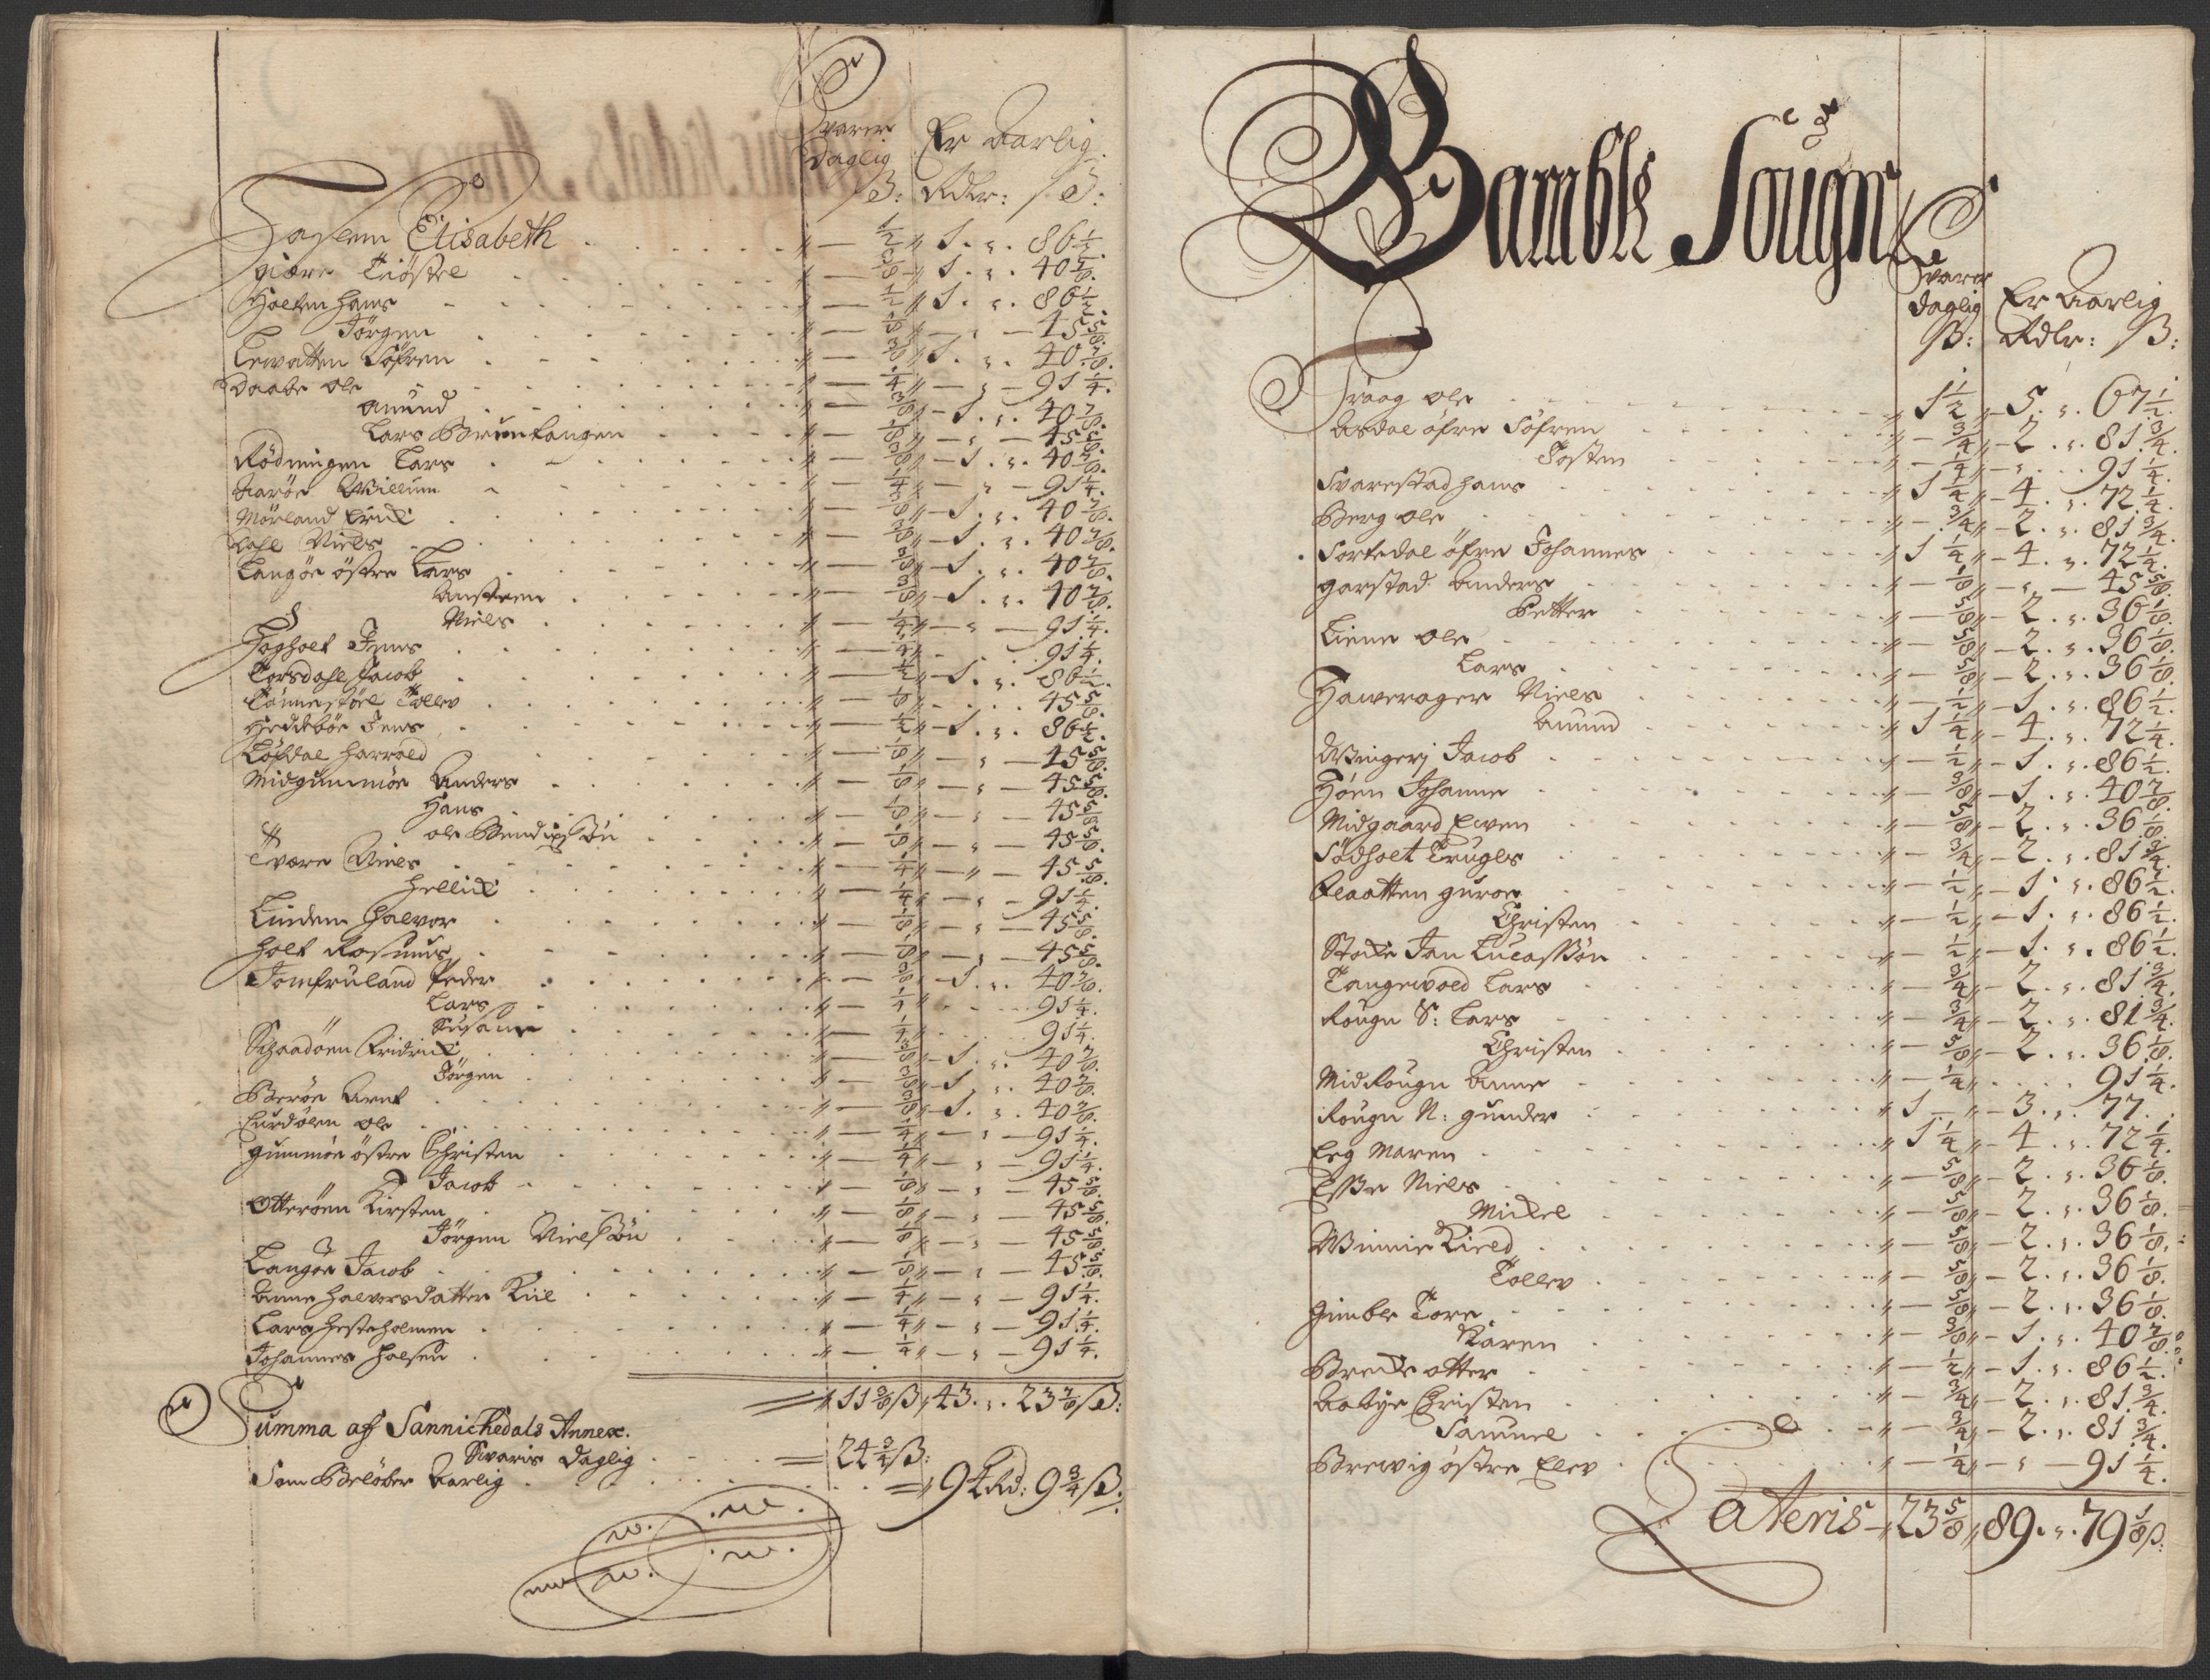 Svarer
Daglig Er Aarlig
ß: Rdlr: ß:
Haslem Elisabeth " — 1/2 " 1 . " . 86 1/2.
giære Tiöstel " — 3/8 " 1 . " . 40 7/8.
Holten Hans " — 1/2 " 1 . " . 86 1/2.
Jörgen " — 1/8 " — " — 45 5/8.
Lewatten Söfren " — 3/8 " 1 . " . 40 7/8.
Daabe ole " — 1/4 " — " — 91 1/4.
Amund " — 3/8 " — 1 . " . 40 7/8.
Lars Bruntangen " — 1/8 " — " — 45 5/8.
Rödningen Lars " — 3/8 " — 1 . " . 40 7/8.
Aaröe Willum " — 1/4 " — " — 91 1/4.
Mörland Erick " — 3/8 " — 1 . " . 40 7/8.
Dahl Niels " — 3/8 " — 1 . " . 40 7/8.
Langöe östre Lars " — 3/8 " — 1 . " . 40 7/8.
Anstren " — 3/8 " — 1 . " . 40 7/8.
Niels " — 1/4 " — " — 91 1/4.
Hogholt Jens " — 1/4 " — . . 91 1/4.
Torsdahl Jacob " — 1/2 " — 1 . " . 86 1/2.
Tönnestöel Tollev " — 1/8 " — . . . 45 5/8.
Heddeböe Jens " — 1/2 " — 1 . " . 86 1/2.
Löfdal Harrald " — 1/8 " — " — 45 5/8.
Midgummöe Anders " — 1/8 " — " — 45 5/8.
Hans " — 1/8 " — " — 45 5/8.
ole Bendixßön " — 1/8 " — " — 45 5/8.
Tvære Niels " — 1/4 " — " — 45 5/8.
Hellick " — 1/4 " — " — 91 1/4.
Linden Halvor " — 1/8 " — " — 45 5/8.
Holt Rasmus " — 1/8 " — " — 45 5/8.
Jomfruland Peder " — 3/8 " — 1 . " . 40 7/8.
Lars " — 1/4 " . . . 91 1/4.
Susanne " — 1/4 " . . . 91 1/4.
Schaadöen Fridrick " — 3/8 " — 1 . " . 40 7/8.
Jörgen " — 3/8 " — 1 . " . 40 7/8.
Beröe Arnt " — 3/8 " — 1 . " . 40 7/8.
Furöölen ole " — 1/4 " — " — 91 1/4.
gummöe östre Christen " — 1/4 " — " — 91 1/4.
Jacob " — 1/8 " — " — 45 5/8.
Otteröen Kirsten " — 1/8 " — " — 45 5/8.
Jörgen Nielßön " — 1/8 " — " — 45 5/8.
Langöe Jacob " — 1/8 " — " — 45 5/8.
Anne Halvorsdatter Kiil " — 1/4 " — " — 91 1/4.
Lars Hesteholmen " — 1/4 " — " — 91 1/4.
Johannes Halsen " — 1/4 " — " — 91 1/4.
= " 11 3/8 ß " 43 . " . 23 7/8 ß:
Summa aff Sannichedals Annex.
Svaris Daglig = 24 3/4 ß:
Som Belöber Aarlig = " 94 Rd: 9 3/4 ß:
Bamble Sougn
Svarer
daglig Er Aarlig
ß: Rdlr: ß:
Traag ole " 1 1/2 " — 5 . " . 67 1/2.
Asdal öfre Söfren " — 3/4 " — 2 . " . 81 3/4.
Josten " — 1/4 " — " . . 91 1/4.
Svarestad Hans " 1 1/4 " — 4 . " . 72 1/4.
Berg ole " — 3/4 " — 2 . " . 81 3/4.
Sortedal öfre Johannes " 1 1/4 " — 4 . " . 72 1/4.
garstad Anders " — 1/8 " — " — 45 5/8.
Petter " — 5/8 " — 2 . " . 36 1/8.
Liene ole " — 5/8 " — 2 . " . 36 1/8.
Lars " — 5/8 " — 2 . " . 36 1/8.
Hawerager Niels " — 1/2 " — 1 . " . 86 1/2.
Amund " 1 1/4 " — 4 . " . 72 1/4.
Wingerj Jacob " — 1/2 " — 1 . " . 86 1/2.
Höen Johanne " — 3/8 " — 1 . " . 40 7/8.
Midgaard Even " — 5/8 " — 2 . " . 36 1/8.
Södholt Truglls " — 3/4 " — 2 . " . 81 3/4.
Flaatten guroe " — 1/2 " — 1 . " . 86 1/2.
Christen " — 1/2 " — 1 . " . 86 1/2.
Stocke Jan Lucaßön " — 1/2 " — 1 . " . 86 1/2.
Tangewald Lars " — 3/4 " — 2 . " . 81 3/4.
Rougn S: Lars " — 3/4 " — 2 . " . 81 3/4.
Christen " — 5/8 " — 2 . " . 36 1/8.
MidRougn Anne " — 1/4 " . . . . 91 1/4.
Rougn N: gunder " 1 — " — 3 . " . 77.
Eeg Maren " 1 1/4 " — 4 . " . 72 1/4.
Eßße Niels " — 5/8 " — 2 . " . 36 1/8.
Mickel " — 5/8 " — 2 . " . 36 1/8.
Winnie Kield " — 5/8 " — 2 . " . 36 1/8.
Tollev " — 5/8 " — 2 . " . 36 1/8.
Gimble Tore " — 5/8 " — 2 . " . 36 1/8.
Karen " — 3/8 " — 1 . " . 40 7/8.
Brecke otter " — 1/2 " — 1 . " . 86 1/2.
Aabye Christen " — 3/4 " — 2 . " . 81 3/4.
Samuel " — 3/4 " — 2 . " . 81 3/4.
Brewig östre Elev " — 1/4 " — " — 91 1/4.
Lateris — " 23 5/8 " 89 . " . 79 1/8 ß: